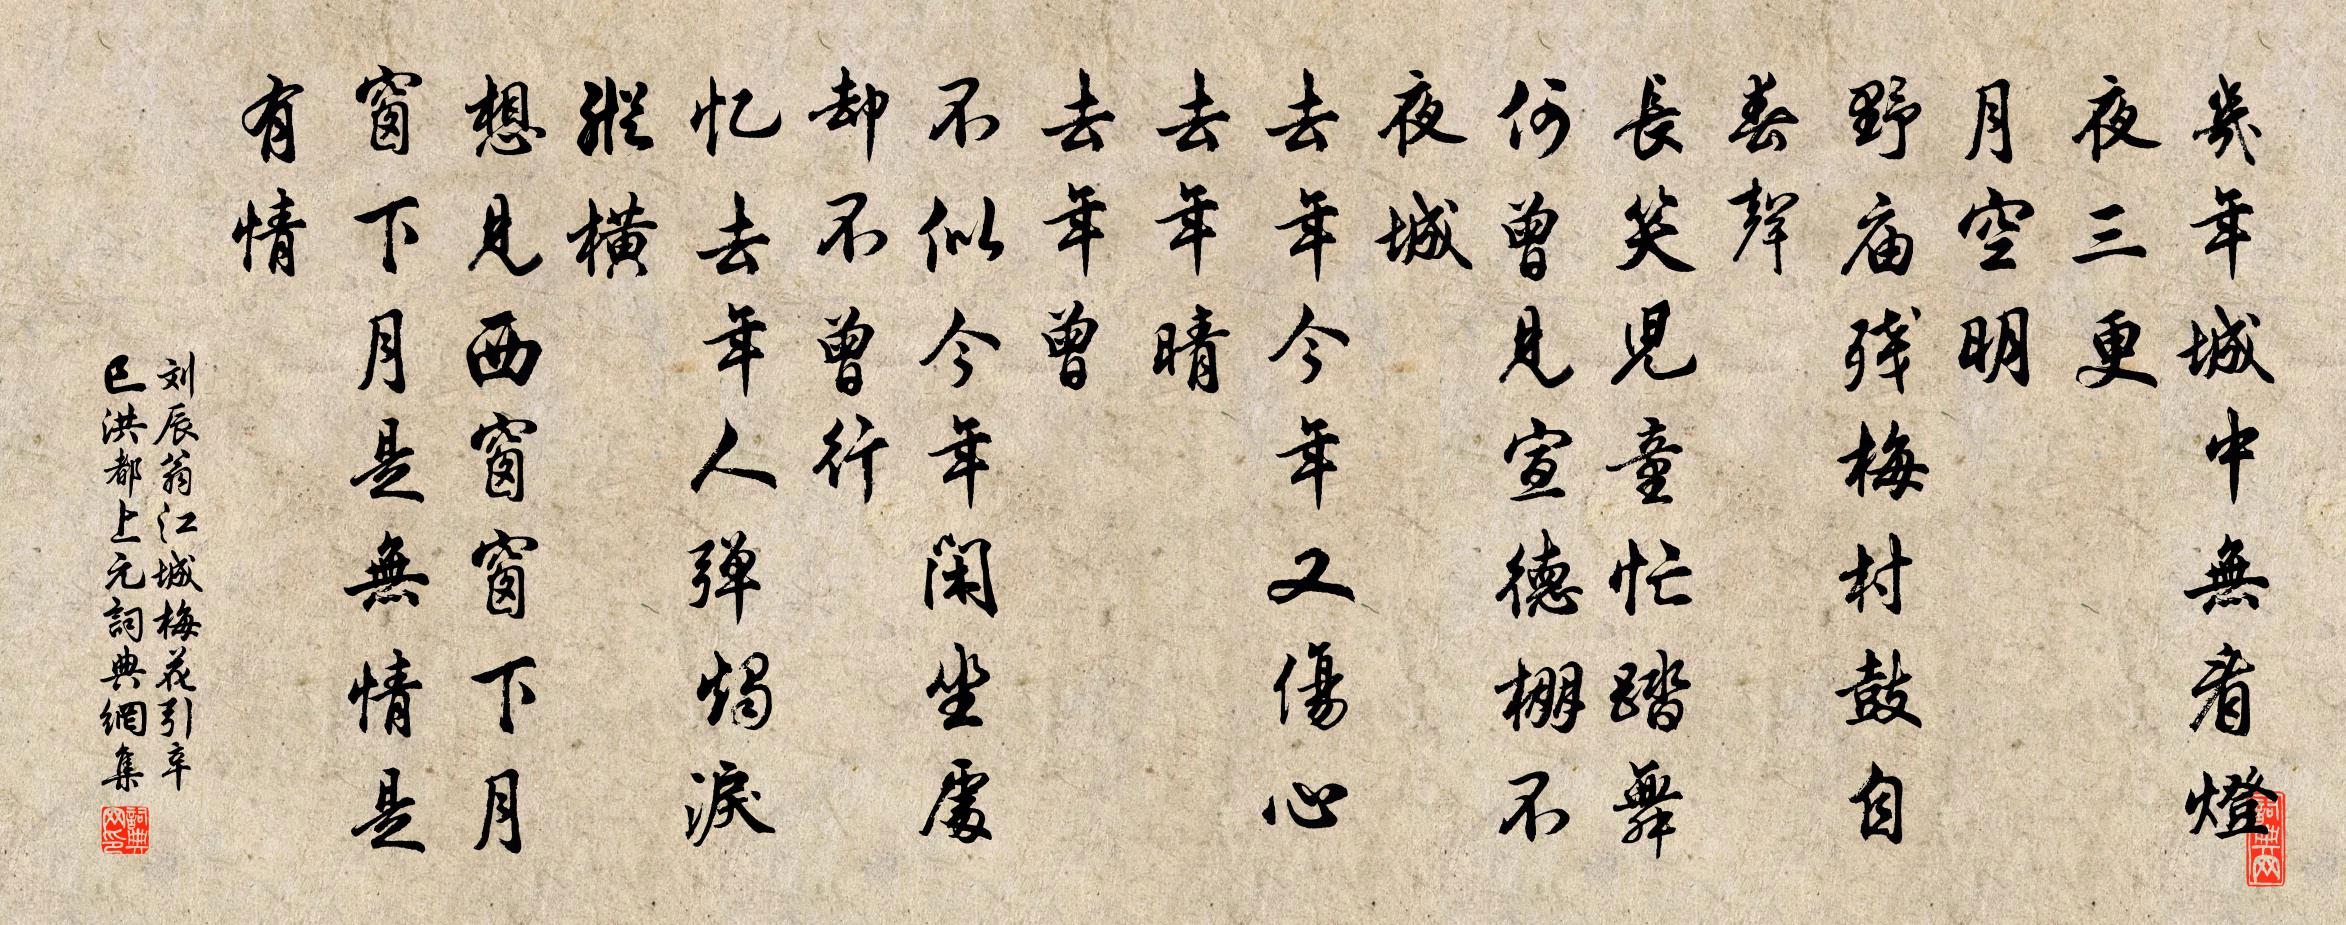 幾年城中無看燈
夜三更
月空明
野庙残梅村鼓自
春聲
長笑児童忙踏舞
何曾見宣德棚不
夜城
去年今年又傷心
去年晴
去年曾
不似今年閑坐處
却不曾行
忆去年人弹燭淚
縱橫
想見西窗窗下月
窗下月是無情是
有情
刘辰翁江城梅花引辛
巳洪都上元詞典網集
詞典網
詞典網印